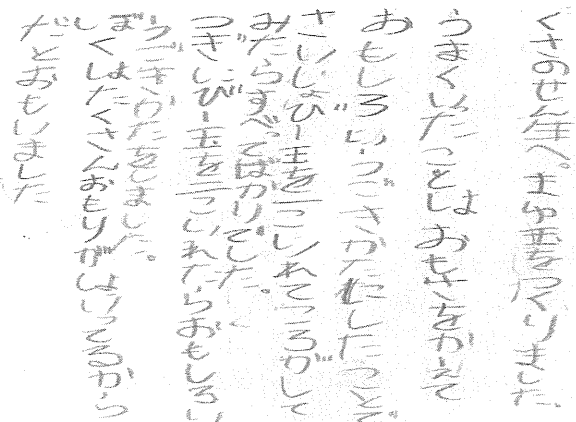 くさのせんせい。玉をつくりました
うまくいったことはおもさをかえて
おもしろいうごきかたにしたこと
さいしょびー玉を一こいれてころがして
みたらすべってばかりでした。
つぎにびー玉を二こいれたらおもしろい
うごきかたをしました。
ぼくはたくさんおもりがはいってるから
だとおもいました